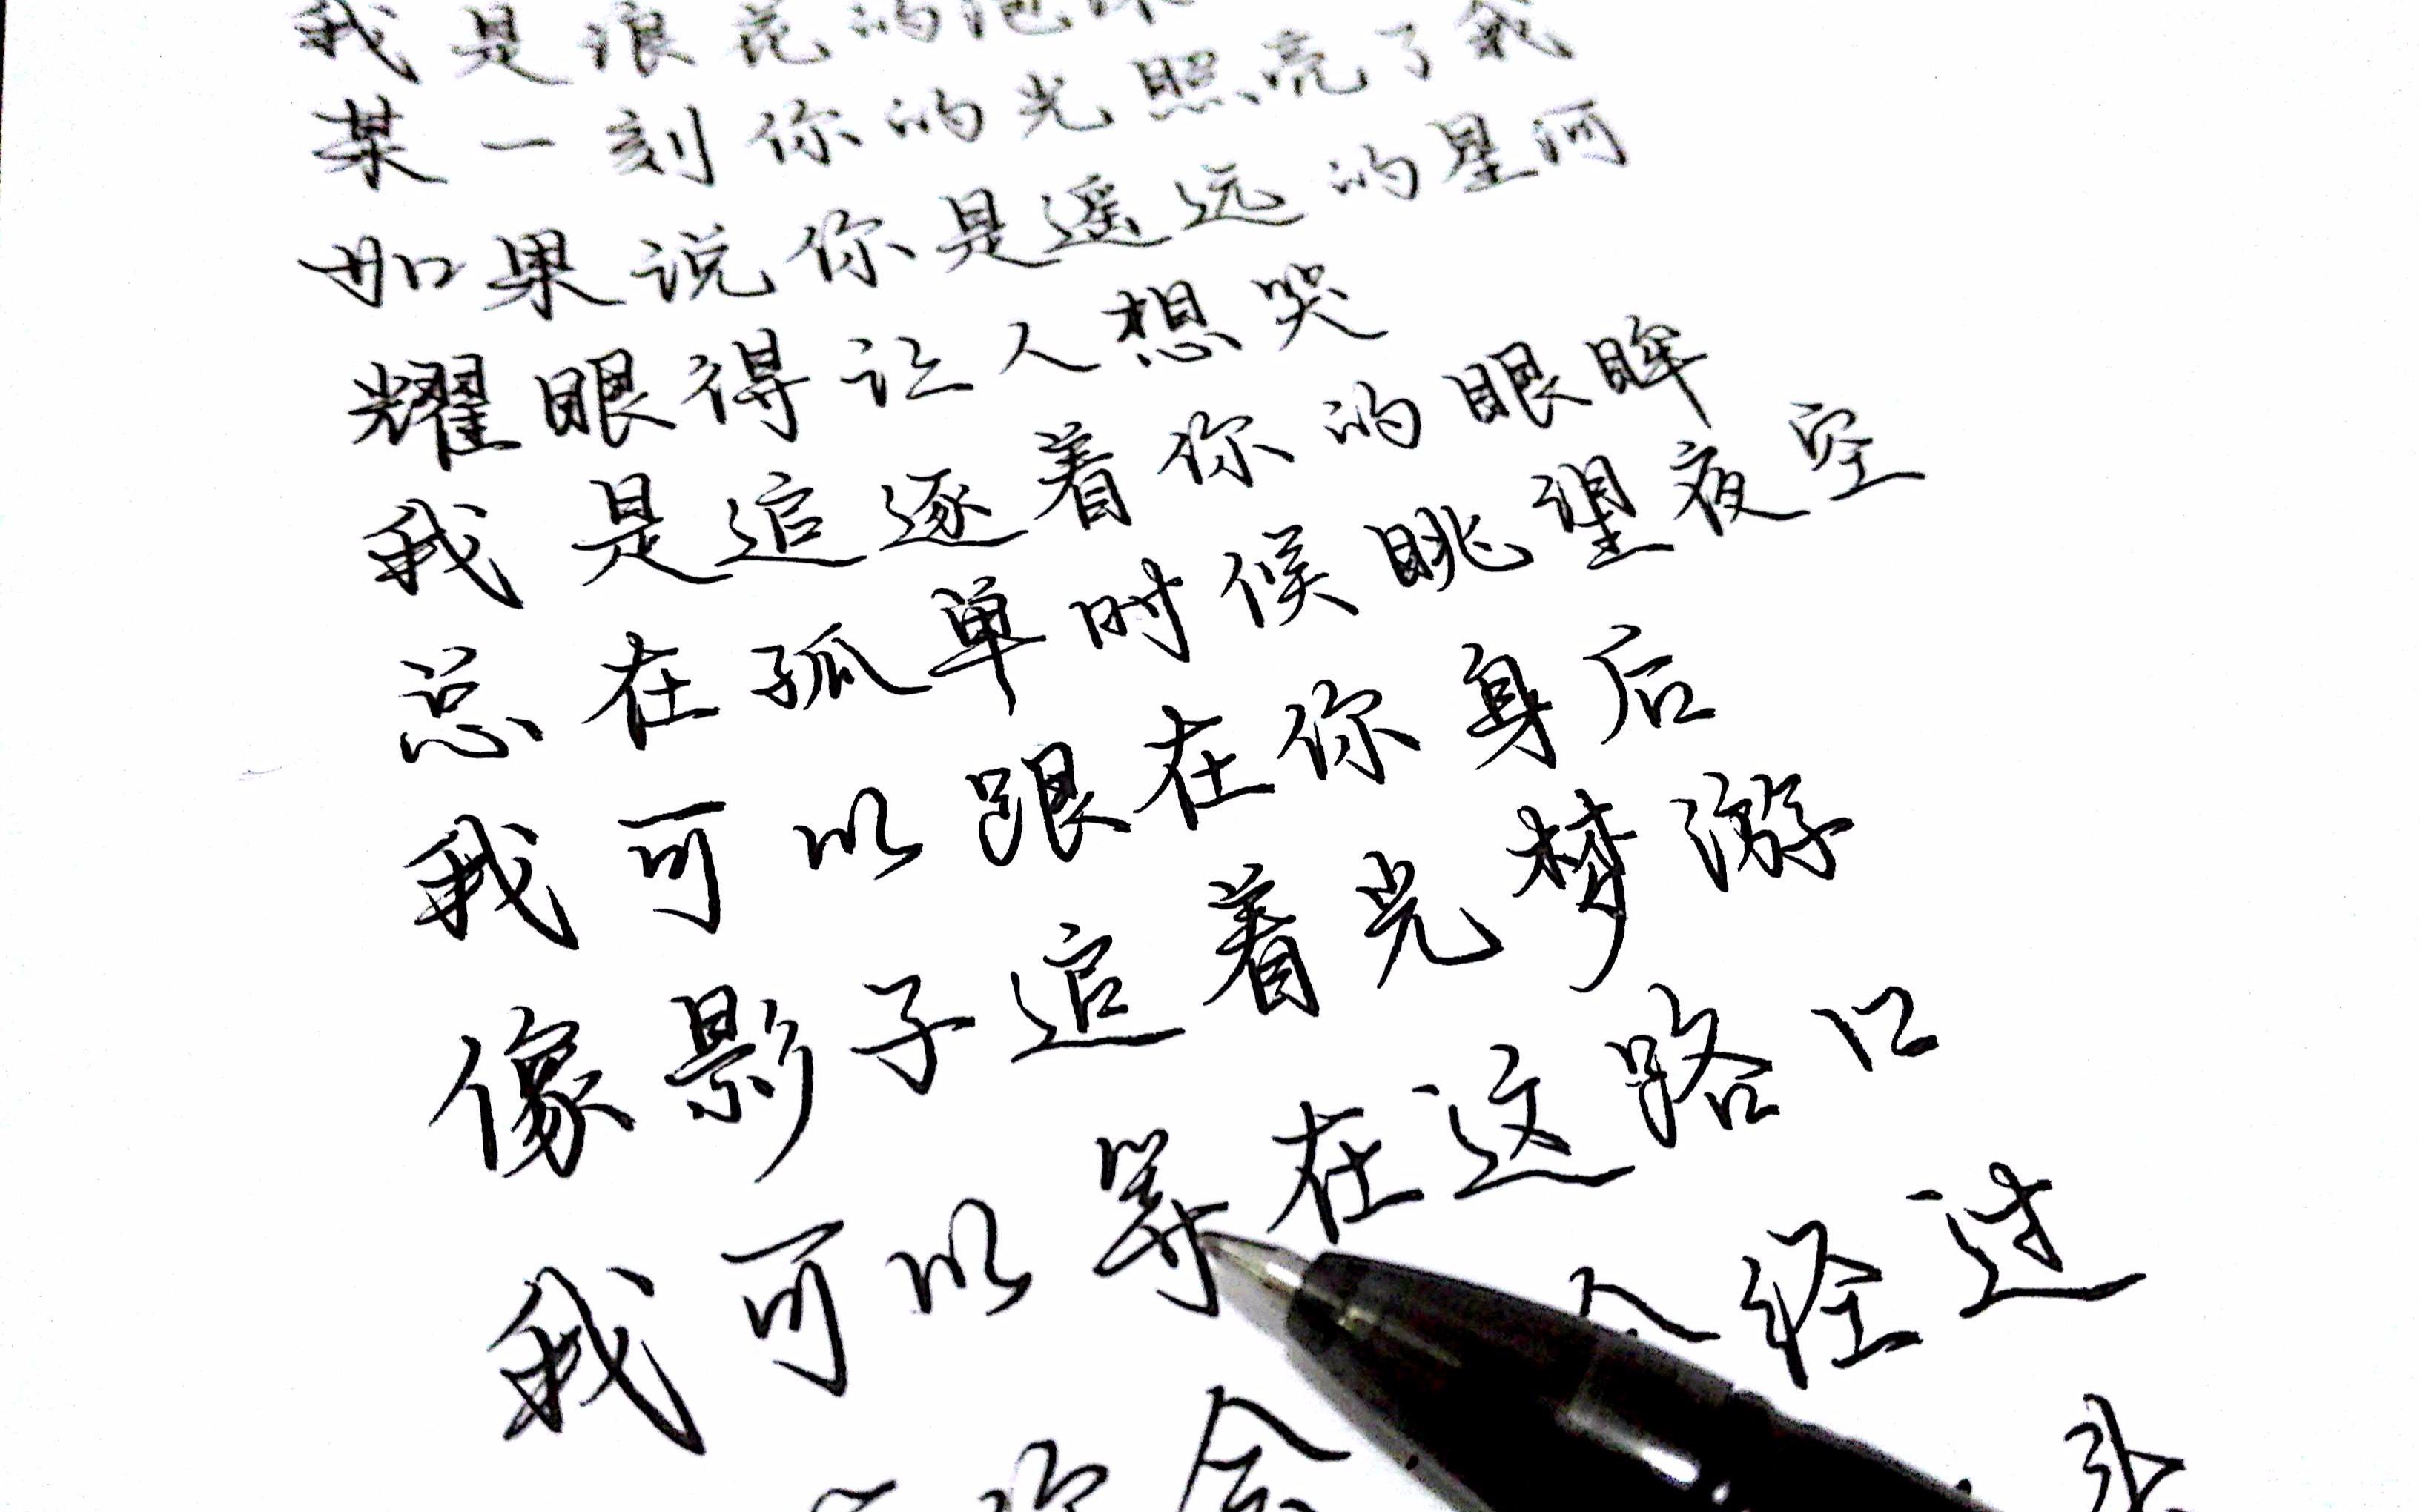 我是浪花的泡沫
某一刻你的光照亮了我
如果说你是遥远的星河
耀眼得让人想哭
我是追逐着你的眼眸
总在孤单时候眺望夜空
我可以跟在你身后
像影子追着光梦游
我可以等在这路口
会经过
你会 永